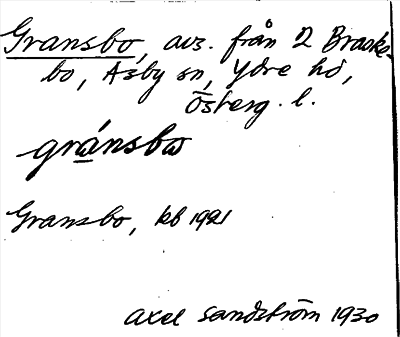 Gransbo, avs. från 2 Braske-
bo, Asby sn, Ydre hd,
Östergl. l.
gránsbω
Gransbo, kb 1921
Axel Sandström 1930